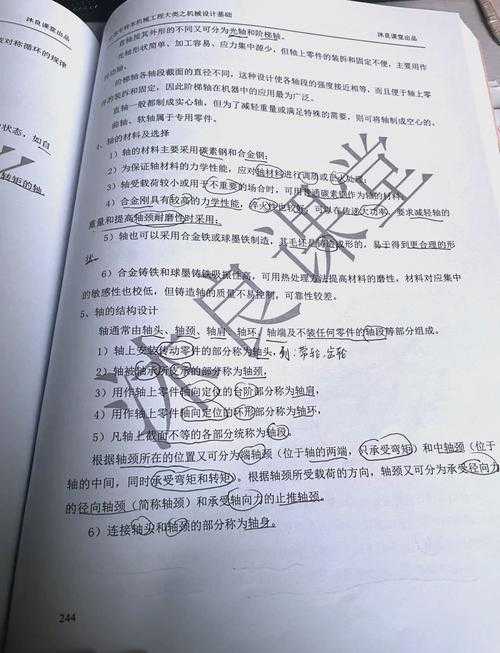 对称循环的规律
状态，如自
转矩的轴。
专转本机械工程大类之机械设计基础
沐良课堂出品
直轴按其外形的不同又可分为光轴和阶梯轴。
光轴形状简单、加工容易、应力集中源少，但轴上零件的装拆和固定不便，主要用作
传动轴。
阶梯轴各轴段截面的直径不同，这种设计使各轴段的强度接近相等，而且便于轴上零
件的装拆和固定，因此阶梯轴在机器中的应用最为广泛。
直轴一般都制成实心轴，但为了减轻重量或满足特殊的需要，则可将轴制成空心的。
曲轴、软轴属于专用零件。
4、轴的材料及选择
1）轴的材料主要采用碳素钢和合金钢；
2）为保证轴材料的力学性能，应对轴材料进行调质或正火处理。
3）轴受载荷较小或用于不重要的场合时，可用普通碳素钢作为轴的材料。
4）合金刚具有较高的力学性能，淬火性也较好，可以在传递大功率，要求减轻轴的
重量和提高轴颈耐磨性时采用；
5）轴也可以采用合金铁或球墨铁制造，其毛坯是铸造成形的，易于得到更合理的形
状
6）合金铸铁和球墨铸铁吸振性高，可用热处理方法提高材料的磨性，材料对应集中
的敏感性也校低，但铸造轴的质量不易控制，可靠性较差。
5、轴的结构设计
轴通常由轴头、轴颈、轴肩、轴环、轴端及不装任何零件的轴段等部分组成。
1）轴上安装传动零件的部分称为轴头，例：带轮，齿轮
2）轴被轴承所支承的部分称为轴颈，
3）用作轴上零件轴向定位的台阶部分称为轴肩，
4）用作轴上零件轴向定位的环形部分称为轴环，
5）凡轴上截面不等的各部分统称为轴段。
根据轴颈所在的位置又可分为端轴颈（位于轴的两端，只承受弯矩）和中轴颈（位于
轴的中间，同时承受弯矩和转矩）。根据轴颈所受载荷的方向，轴颈又可分为承受径向力
的径向轴颈（简称轴颈）和承受轴向力的止推轴颈。
6）连接轴头和轴颈的部分称为轴身。
沐良课堂
244